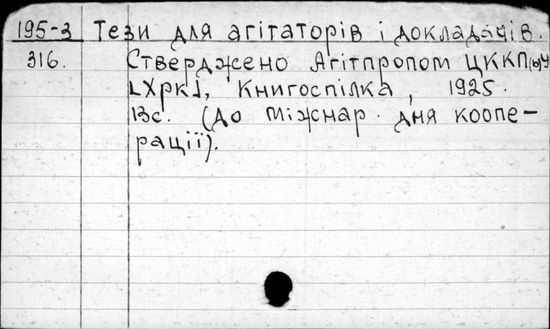 195-3 Тези для агітаторів і докладачів.
316. Стверджено Агітпропом ЦККП(ы)У
[Хрк], Книгоспілка, 1925.
13с. (До Міжнар. дня коопе-
рації).